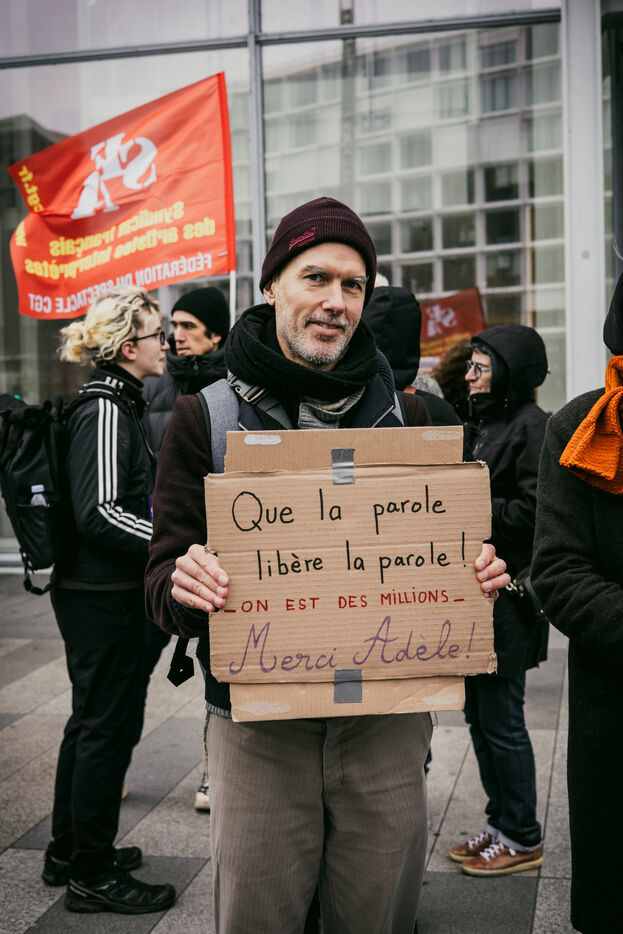 SFA
Syndicat français
des artistes interprètes
FÉDÉRATION DU SPECTACLE CGT
cgt.fr
Que la parole
libère la parole !
_ON EST DES MILLIONS_
Merci Adèle !